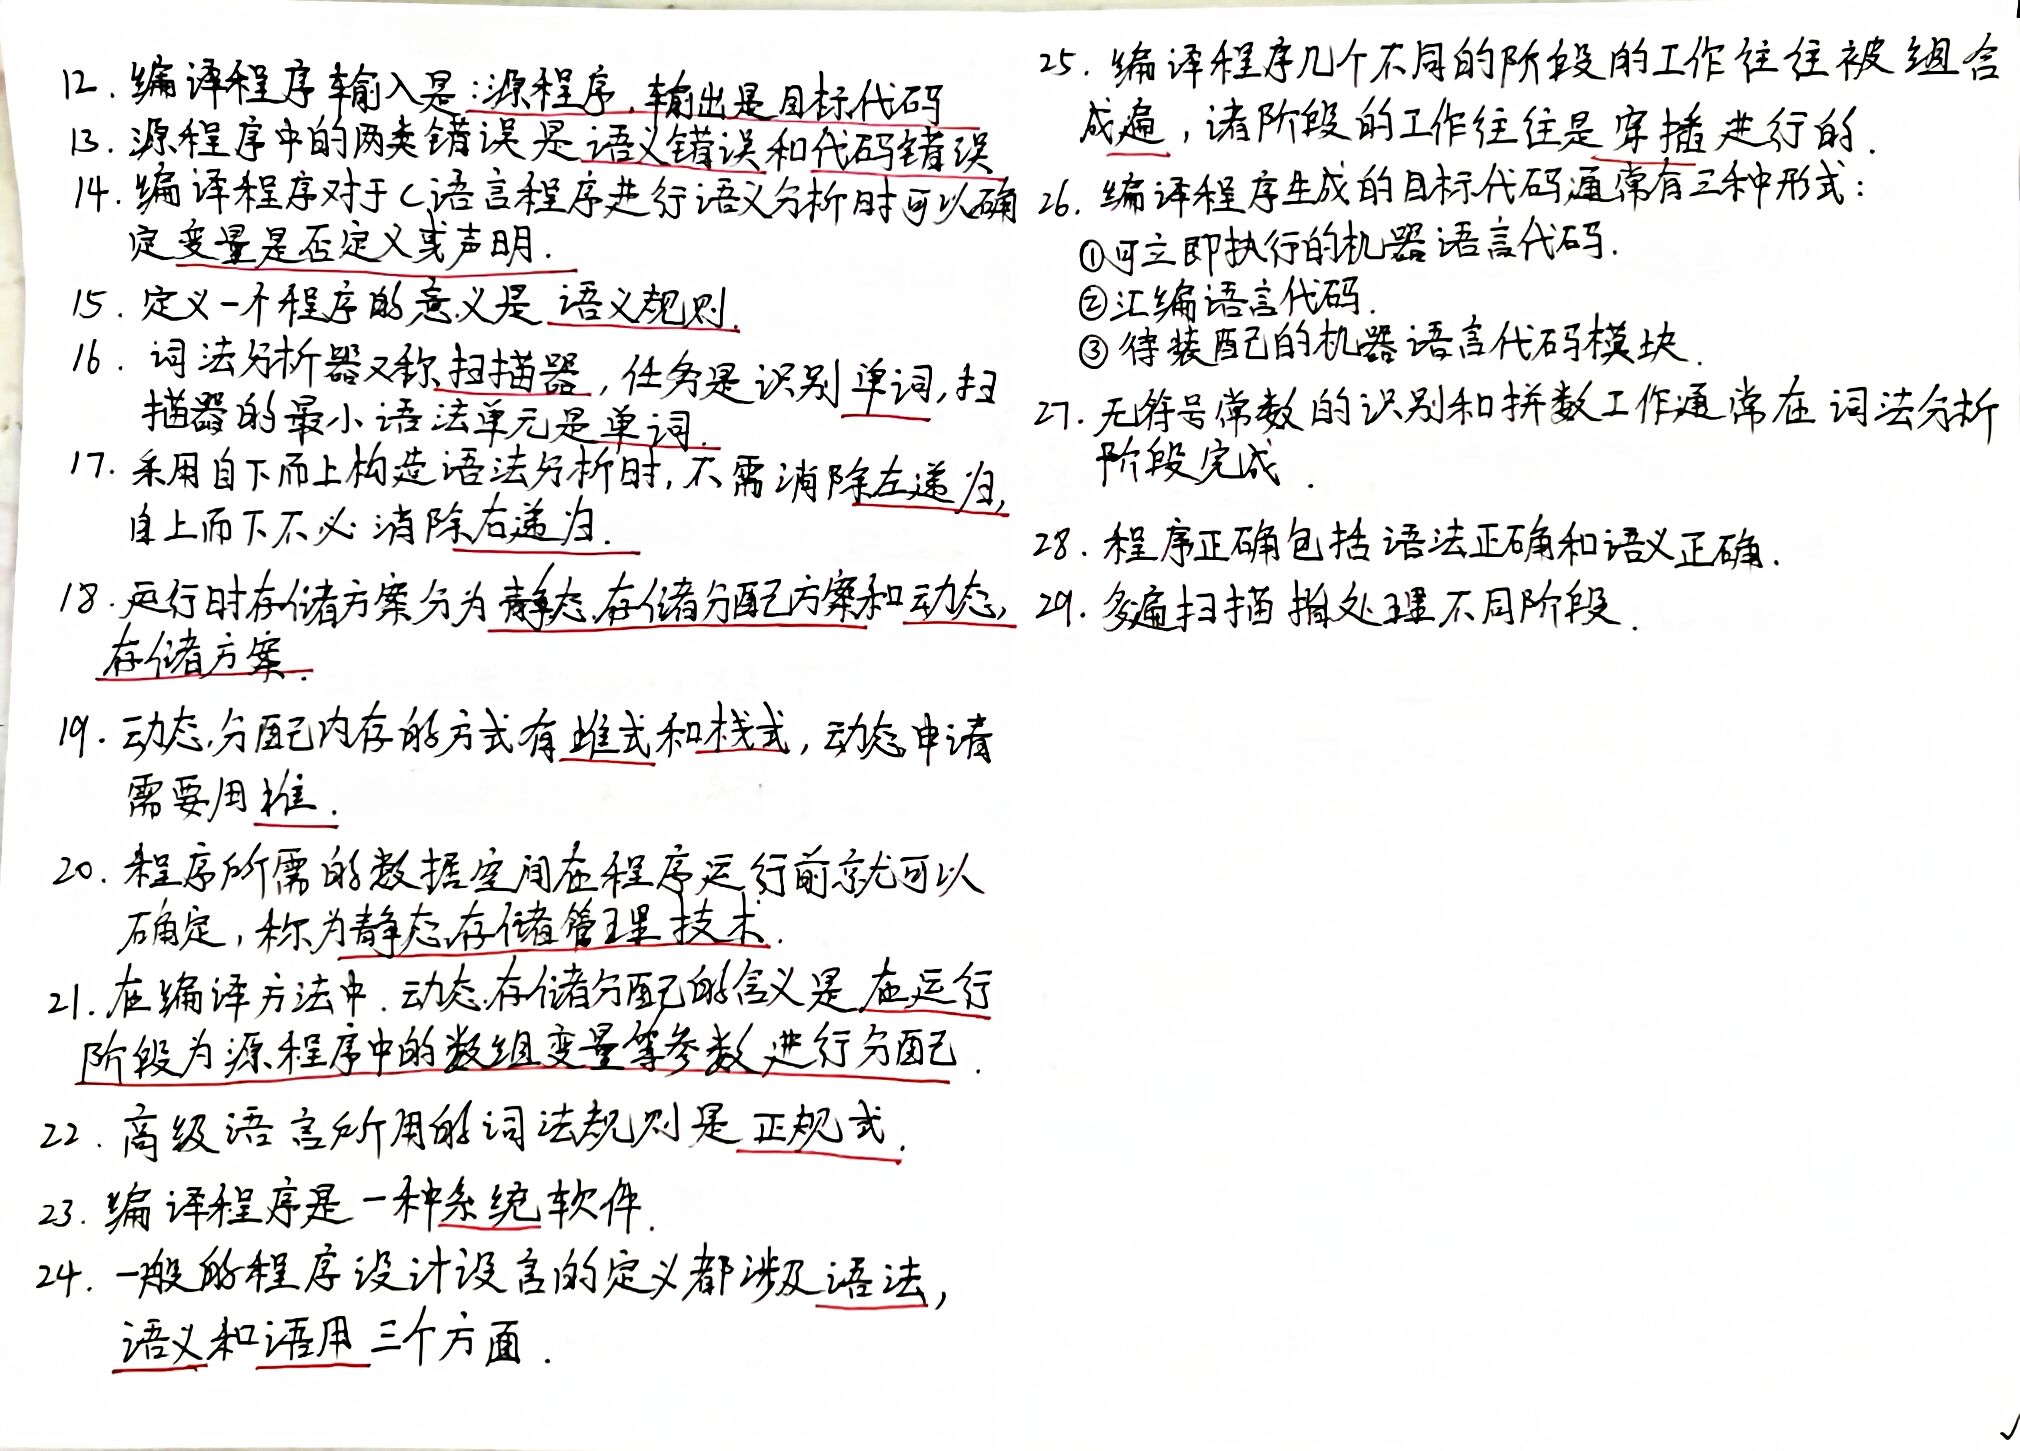 12. 编译程序输入是:源程序,输出是目标代码
13. 源程序中的两类错误是语义错误和代码错误
14. 编译程序对于C语言程序进行语义分析时可以确
定变量是否定义或声明.
15. 定义一个程序的意义是语义规则.
16. 词法分析器又称扫描器,任务是识别单词,扫
描器的最小语法单元是单词.
17. 采用自下而上构造语法分析时,不需消除左递归,
自上而下不必消除右递归.
18. 运行时存储方案分为静态存储分配方案和动态
存储方案.
19. 动态分配内存的方式有堆式和栈式,动态申请
需要用堆.
20. 程序所需的数据空间在程序运行前就可以
确定,称为静态存储管理技术.
21. 在编译方法中.动态存储分配的含义是在运行
阶段为源程序中的数组变量等参数进行分配.
22. 高级语言所用的词法规则是正规式.
23. 编译程序是一种系统软件.
24. 一般的程序设计设言的定义都涉及语法,
语义和语用三个方面.
25. 编译程序几个不同的阶段的工作往往被组合
成遍,诸阶段的工作往往是穿插进行的.
26. 编译程序生成的目标代码通常有三种形式:
①可立即执行的机器语言代码.
②汇编语言代码.
③待装配的机器语言代码模块.
27. 无符号常数的识别和拼数工作通常在词法分析
阶段完成.
28. 程序正确包括语法正确和语义正确.
29. 多遍扫描指处理不同阶段.